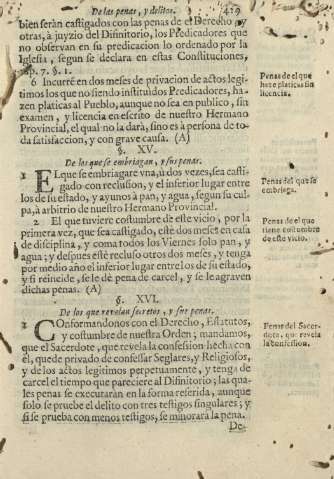 De las penas, y delitos. 429
bien seràn castigados con las penas de el Derecho, y
otras, à juyzio del Difinitorio, los Predicadores que
no observan en su predicacion lo ordenado por la
Iglesia, segun se declara en estas Constituciones,
cap. 7. §. 1.
6 Incurrè en dos meses de privacion de actos legi-
timos los que no siendo instituìdos Predicadores, ha-
zen platicas al Pueblo, aunque no sea en publico, sin
examen, y licencia en escrito de nuestro Hermano
Provincial, el qual no la darà, sino es à persona de to-
da satisfaccion, y con grave causa. (A)
Penas de el que
haze platicas sin
licencia.
§. XV.
De los que se embriagan, y sus penas.
1 EL que se embriagare vna, ù dos vezes, sea casti-
gado con reclusion, y el inferior lugar entre
los de su estado, y ayunos à pan, y agua, segun su cul-
pa, à arbitrio de nuestro Hermano Provincial.
Penas del que se
embriaga.
2 El que tuviere costumbre de este vicio, por la
primera vez, que sea castigado, estè dos meses en casa
de disciplina, y coma todos los Viernes solo pan, y
agua; y despues estè recluso otros dos meses, y tenga
por medio año el inferior lugar entre los de su estado,
y si reincide, se le dè pena de carcel, y se le agraven
dichas penas. (A)
Penas de el que
tiene costumbre
de este vicio.
§. XVI.
De los que revelan secretos, y sus penas.
1 COnformandonos con el Derecho, Estatutos,
y costumbre de nuestra Orden; mandamos,
que el Sacerdote, que revela la confession hecha con
èl, quede privado de confessar Seglares, y Religiosos,
y de los actos legitimos perpetuamente, y tenga de
carcel el tiempo que pareciere al Difinitorio; las qua-
les penas se executaràn en la forma referida, aunque
solo se pruebe el delito con tres testigos singulares; y
si se prueba con menos testigos, se minorarà la pena.
Penas del Sacer-
dote, que revela
la confession.
De-